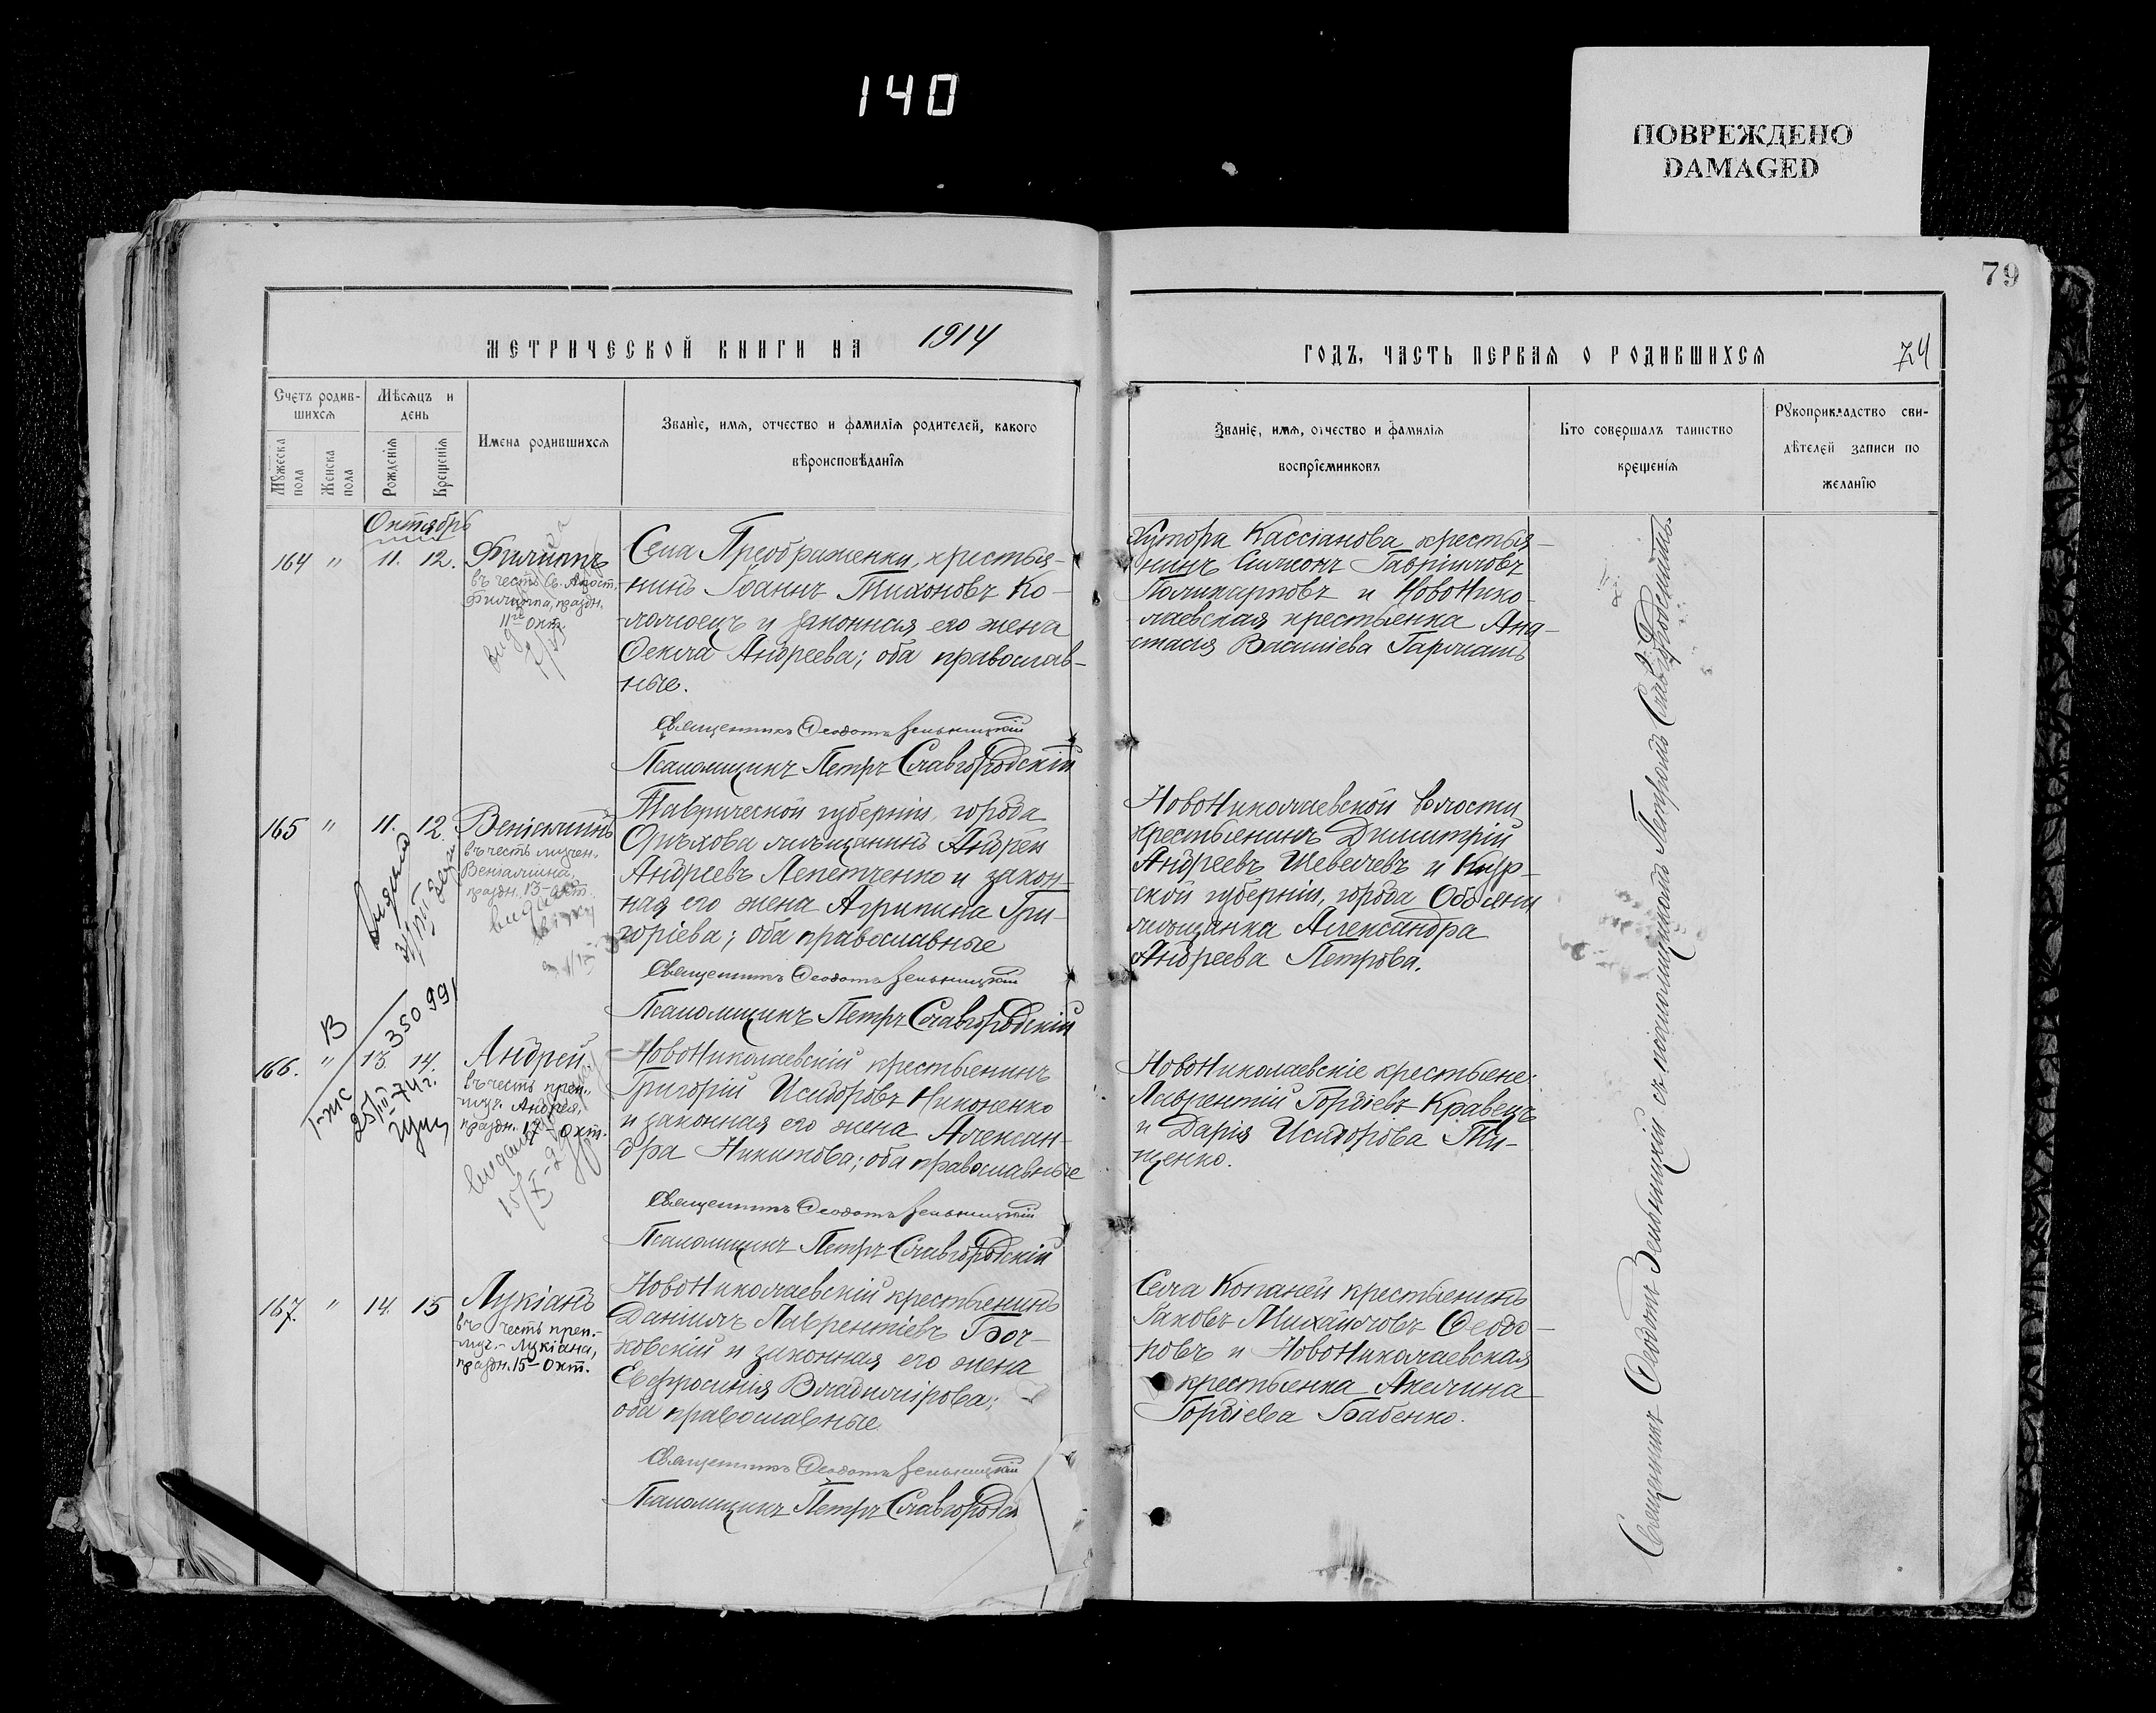 140
ПОВРЕЖДЕНО
DAMAGED
79
МЕТРИЧЕСКОЙ КНИГИ НА 1914
ГОДЪ, ЧАСТЬ ПЕРВАЯ О РОДИВШИХСЯ
74
Счетъ родив-
шихся
Мужеска
пола
Женска
пола
Мѣсяцъ и
день
Рожденія
Крещенія
Имена родившихся
Званіе, имя, отчество и фамилія родителей, какого
вѣроисповѣданія
Званіе, имя, отчество и фамилія
воспріемниковъ
Кто совершалъ таинство
крещенія
Рукоприкладство сви-
дѣтелей записи по
желанію
Октябрь
164 " 11. 12.
Филиппъ
въ честь Св. Апост.
Филиппа, праздн.
11го Окт.
Села Преображенки, крестья-
нинъ Іоаннъ Тихоновъ Ко-
ломоецъ и законная его жена
Ѳекла Андреева; оба православ-
ные.
Священникъ Ѳеодотъ Зельницкій
Псаломщикъ Петръ Славгородскій
Хутора Кассіанова крестья-
нинъ Симеонъ Гавріиловъ
Поликарповъ и НовоНико-
лаевская крестьянка Ана-
стасія Василіева Гармашъ
165 " 11. 12.
Веніаминъ
въ честь мучен.
Веніамина,
праздн. 13-Окт.
Таврической губерніи, города
Орѣхова мѣщанинъ Андрей
Андреевъ Лепетченко и закон-
ная его жена Агрипина Гри-
горіева; оба православные
Священникъ Ѳеодотъ Зельницкій
Псаломщикъ Петръ Славгородскій
НовоНиколаевской волости,
крестьянинъ Димитрій
Андреевъ Шевелевъ и Кур-
ской губерніи, города Обояни
мѣщанка Александра
Андреева Петрова.
В
350991
166. " 13. 14.
Андрей
въ честь преп.-
муч. Андрея,
праздн. 17-Окт.
НовоНиколаевскій крестьянинъ
Григорій Исидоровъ Никоненко
и законная его жена Алексан-
дра Никитова; оба православные
Священникъ Ѳеодотъ Зельницкій
Псаломщикъ Петръ Славгородскій
НовоНиколаевскіе крестьяне:
Лаврентій Гордіевъ Кравецъ
и Дарія Исидорова Ти-
щенко.
167. " 14. 15
Лукіанъ
въ честь преп.-
муч.- Лукіана,
праздн. 15-Окт.
НовоНиколаевскій крестьянинъ
Даніилъ Лаврентіевъ Боч-
ковскій и законная его жена
Евфросинія Владимірова;
оба православные
Священникъ Ѳеодотъ Зельницкій
Псаломщикъ Петръ Славгородск
Села Копаней крестьянинъ
Іаковъ Михайловъ Ѳедо-
ровъ и НовоНиколаевская
крестьянка Акилина
Гордіева Бабенко.
Священникъ Ѳеодотъ Зельницкій съ псаломщикомъ Петромъ Славгородскимъ.